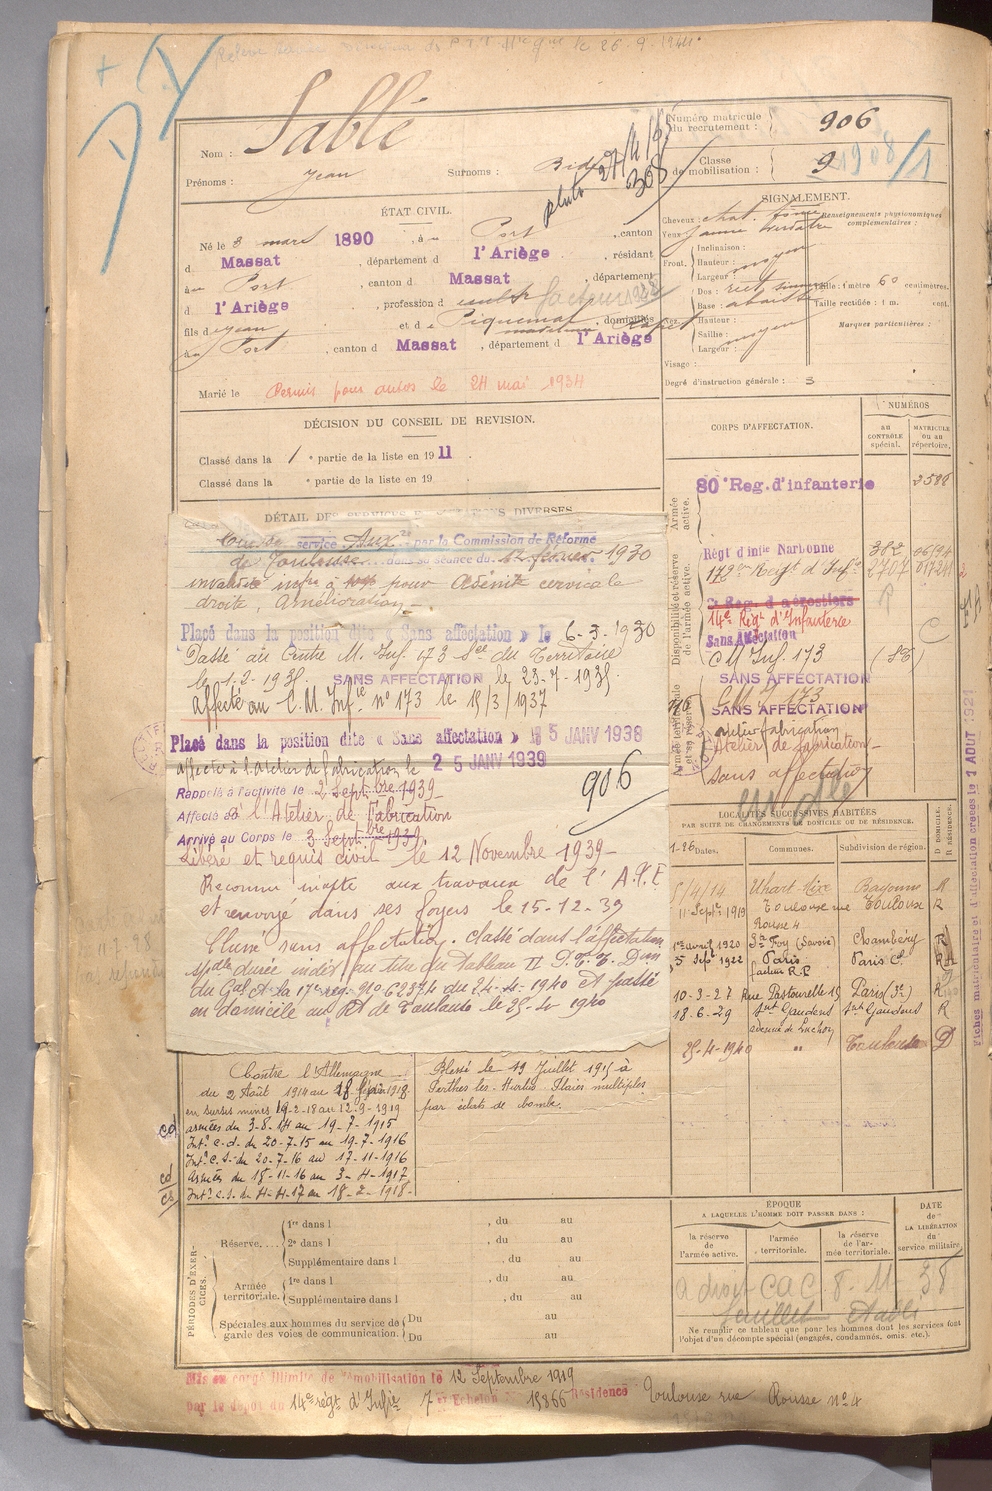 Relevé
26.9.1944
Nom : Sablé
Prénoms : Jean
Surnoms :
Numéro matricule du recrutement : 906
Classe de mobilisation : 9
1908/1
ÉTAT CIVIL.
Né le 3 mars 1890, à Port, canton
d Massat, département d l'Ariège, résidant
à Port, canton d Massat, département
d l'Ariège, profession d cultr facteur
fils de Jean et de Piquemal, domiciliés
à Port, canton d Massat, département d l'Ariège
Marié le
Permis pour autos le 24 mai 1934
SIGNALEMENT.
Cheveux : chat.
Yeux jaune verdâtre
Front. Inclinaison :
Hauteur : moyen
Largeur :
Nez. Dos : rect.
Base :
Hauteur :
Saillie : moyen
Largeur :
Visage :
Renseignements physionomiques complémentaires :
Taille : 1 mètre 60 centimètres.
Taille rectifiée : 1 m. cent.
Marques particulières :
Degré d'instruction générale : 3
DÉCISION DU CONSEIL DE REVISION.
Classé dans la 1 e partie de la liste en 1911
Classé dans la e partie de la liste en 19
CORPS D'AFFECTATION.
NUMÉROS
AU CONTRÔLE spécial.
MATRICULE OU AU répertoire.
Armée active.
80e Reg. d'infanterie
Disponibilité et réserve de l'armée active.
Régt d'infie Narbonne
173em Regt d'Infie
2707
14e Regt d'Infanterie
Sans Affectation
C M Inf. 173
SANS AFFECTATION
C M I 173
SANS AFFECTATION
atelier fabrication
Atelier de fabrication
sans affectation
Armée territoriale et sa réserve
DÉTAIL DES SERVICES ET MUTATIONS DIVERSES.
service Auxre par la Commission de Réforme
de Toulouse dans sa séance du 12 fevrier 1930
invalidité infre à 10% pour Adénite cervicale
droite, Amélioration.
Placé dans la position dite « Sans affectation » le 6-3-1930
Passé au Centre M. Inf. 173 Son du Territoire
le 1-2-1935. SANS AFFECTATION le 23-7-1935.
Affecté au C.M. Infie n° 173 le 15/3/1937
Placé dans la position dite « Sans affectation » le 5 JANV 1938
affecté à l'atelier de fabrication le 25 JANV 1939
Rappelé à l'activité le 2 Septbre 1939
Affecté à l'Atelier de Fabrication
Arrivé au Corps le 3 Septbre 1939.
906
Libéré et requis civil le 12 Novembre 1939
Reconnu inapte aux travaux de l'
et renvoyé dans ses foyers le 15-12-39
Classé sans affectation. Classé dans l'affectation
spale durée indéf. au titre du Tableau II P.T.T. Don
du Gal Ct la 17e rég. n° 6237.4 du 24-4-1940 et passé
en domicile au Rt de Toulouse le 25-4-1940
LOCALITÉS SUCCESSIVES HABITÉES
PAR SUITE DE CHANGEMENTS DE DOMICILE OU DE RÉSIDENCE.
Dates. Communes. Subdivision de région. D DOMICILE. R RÉSIDENCE.
5/4/14 Uhart Mixe Bayonne R
11 Septe 1919 Toulouse rue Rousse 4 Toulouse R
1er avril 1920 Ste Foy (Savoie) Chambéry R
5 Sept 1922 Paris facteur R.P. Paris C. R
10-3-27 Rue Pastourelle 15 Paris (3e) R
18.6.29 St Gaudens avenue de Luchon St Gaudens R
25-4-1940 " Toulouse D
Contre l'Allemagne
du 2 Août 1914 au
en sursis mines 19-2-18 au 12-9-1919
armées du 3-8-14 au 19-7-1915
Intr c.d. du 20-7-15 au 19-7-1916
Intr c.s. du 20-7-16 au 17-11-1916
Armées du 18-11-16 au 3-4-1917
Intr c.s. du 4-4-17 au 18-2-1918
Blessé le 19 Juillet 1915 à
Perthes les Hurlus Plaies multiples
par éclats de bombe.
PÉRIODES D'EXERCICES.
Réserve.... 1re dans l , du au
2e dans l , du au
Supplémentaire dans l , du au
Armée territoriale. 1re dans l , du au
Supplémentaire dans l , du au
Spéciales aux hommes du service de garde des voies de communication. Du au
Du au
ÉPOQUE
A LAQUELLE L'HOMME DOIT PASSER DANS :
la réserve de l'armée active.
l'armée territoriale.
la réserve de l'armée territoriale.
DATE de LA LIBÉRATION du service militaire.
a droit C A C 8 - 11 38
feuillet établi
Ne remplir ce tableau que pour les hommes dont les services font l'objet d'un décompte spécial (engagés, condamnés, omis, etc.).
Mis en congé illimité de démobilisation le 12 Septembre 1919
par le dépôt du 14e régt d'Infie 7e Echelon N° 15866 Résidence Toulouse rue Rousse n° 4
Fiches matricules et d'affectation créées le 1 AOUT 1921